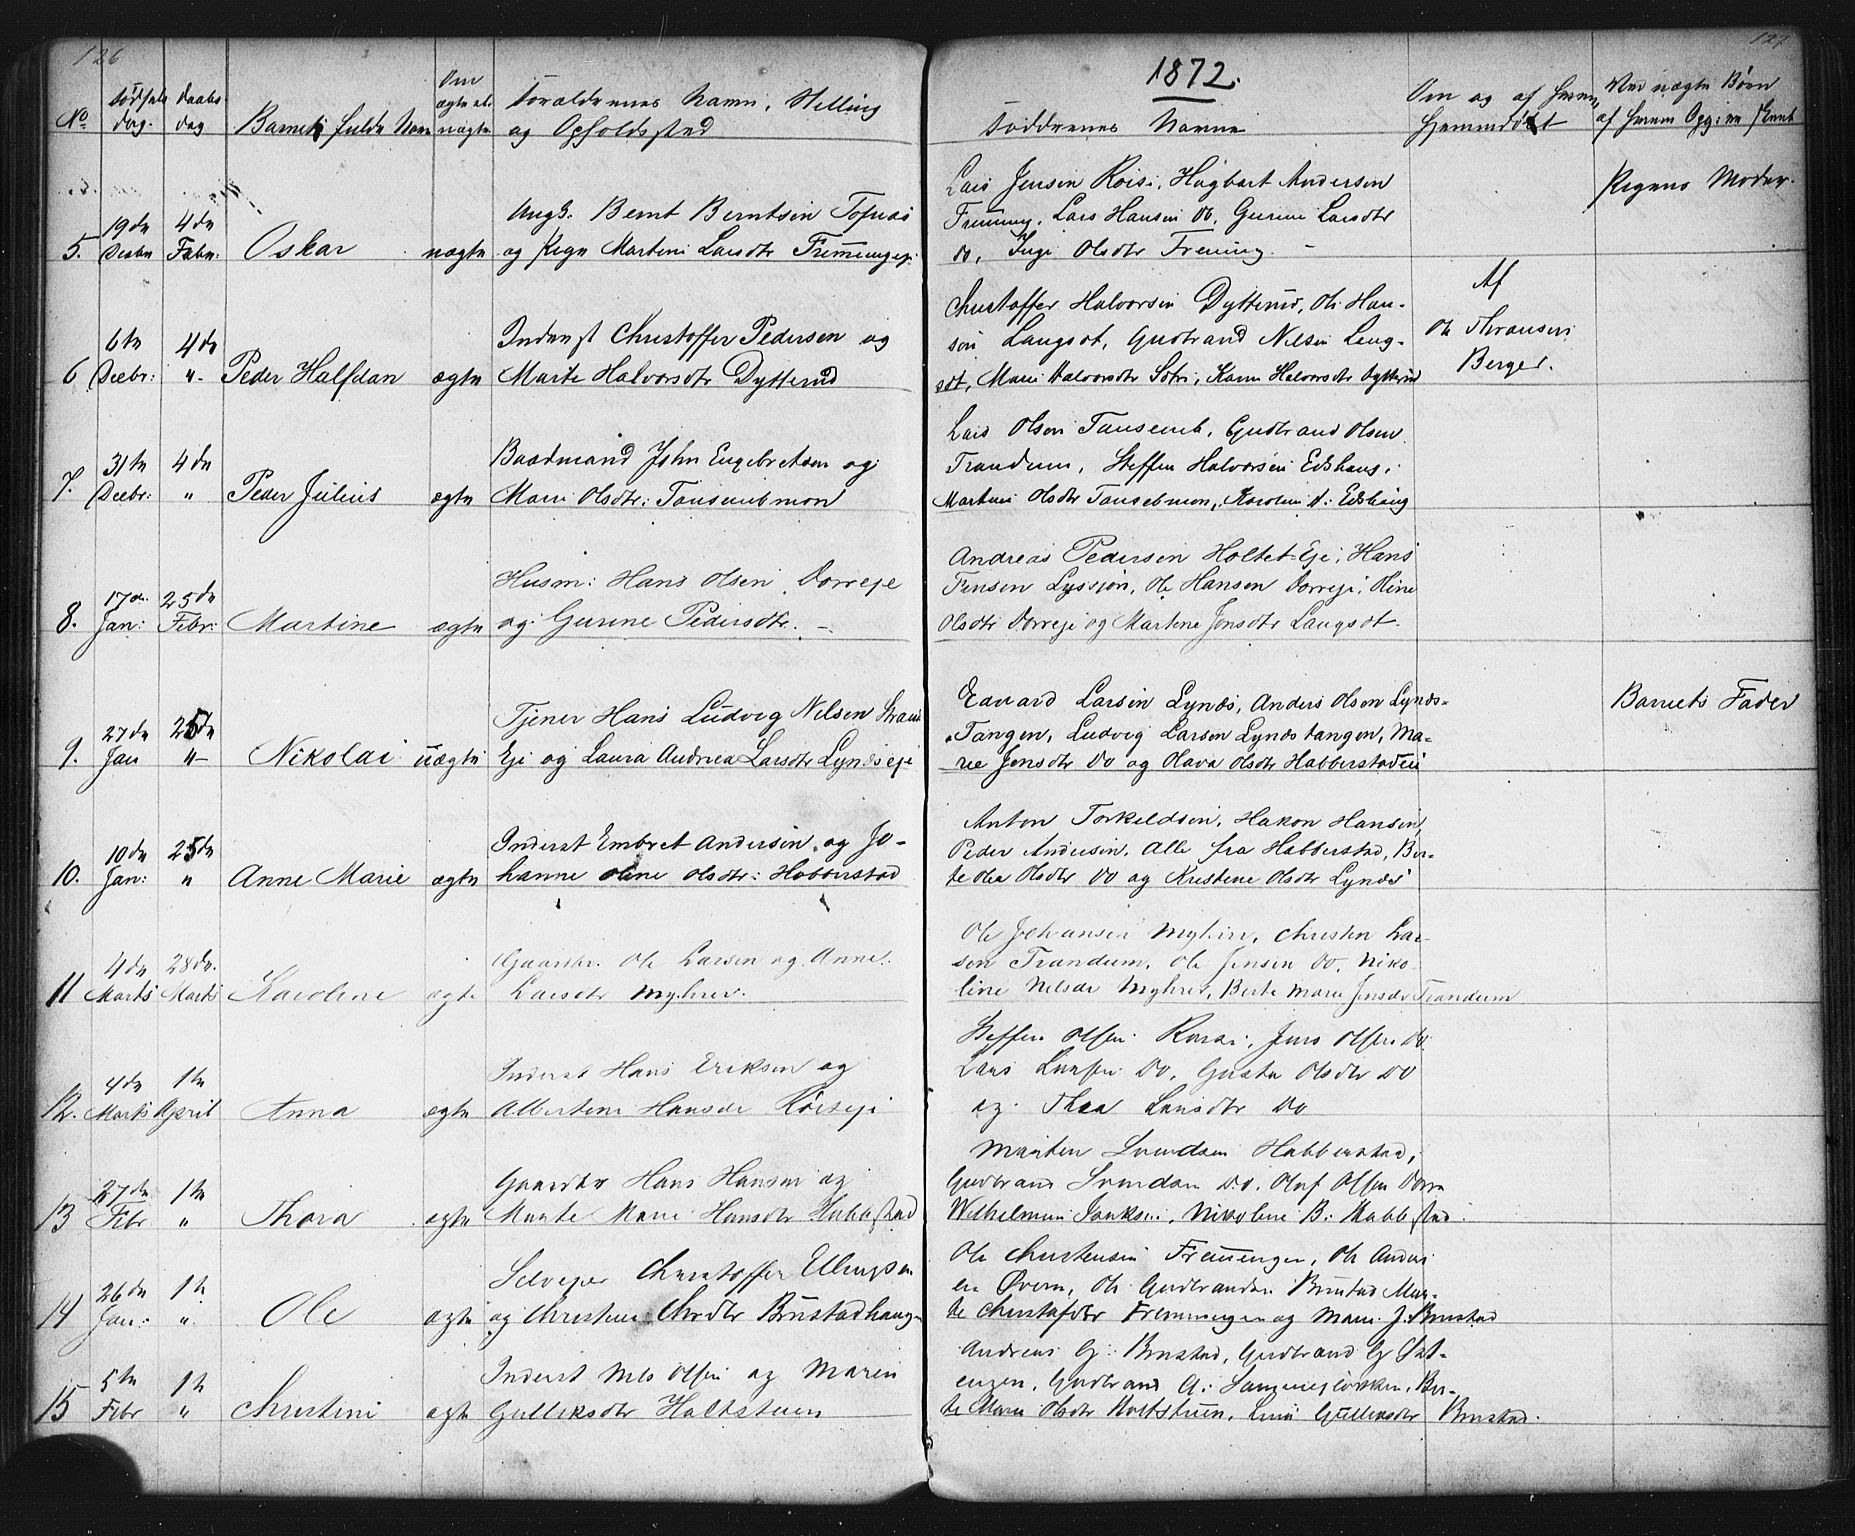 126
127
1872.
No Fødsels dag. Daabs dag Barnets fulde Navn Om ægte el. uægte Forældrenes Navn, Stilling og Opholdssted
Faddrenes Navne
Om og af hvem hjemmedøbt
Ved uægte Børn af hvem Opg: er skeet
5. 19de Decbr 4de Febr: Oskar uægte
Ungk. Bernt Berntsen
og Pige Martine Larsdtr
Lars Jensen Hagbart Andersen
Lars Hansen do, Gurine Larsdtr
do, Inge Olsdtr
Pigens Moder.
6 6te Decbr: 4de " Peder Halfdan ægte
Inderst Christoffer Pedersen og
Marte Halvorsdtr Dytterud
Christoffer Halvorsen Dytterud, Ole Han-
sen Langset, Gudbrand Nilsen Lang-
set, Marie Halvorsdtr Karen Halvorsdtr Dytterud
Af
Berger.
7. 31te Decbr: 4de " Peder Julius ægte
Baadmand John Engebretsen og
Maren Olsdtr:
Lars Olsen Gudbrand Olsen
Trandum, Steffen Halvorsen Edshaug,
Martine Olsdtr
8. 17de Jan: 25de Febr: Martine ægte
Husm: Hans Olsen Dorreje
og Gurine Pedersdtr. –
Andreas Pedersen Holtet Eje, Hans
Jensen Ole Hansen Dorreje,
Olsdtr Dorreje og Martene Jensdtr Langset.
9. 27de Jan 25de " Nikolai uægte
Tjener Hans Ludvig Nilsen
Eje og Laura Andrea Larsdtr Lyndseje
Edvard Larsen Lynds, Anders Olsen Lynds-
Tangen, Ludvig Larsen Lyndstangen, Ma-
rie Jensdtr Do og Olava Olsdtr
Barnets Fader
10. 10de Jan: 25de " Anne Marie ægte
Inderst Embret Andersen og Jo-
hanne Oline Olsdtr: Habberstad
Anton Torkeldsen, Hakon Hansen,
Peder Andersen, Alle fra Habberstad, Ber-
te Olea Olsdtr Do og Kristene Olsdtr Lynds
11 4de Marts 28de Marts Karoline ægte
Gaardbr. Ole Larsen og Anne
Larsdtr Myhrer.
Ole Johansen Myhrer, Christen Lar-
sen Trandum, Ole Jensen Do, Niko-
line Nilsdr Myhrer, Berte Marie Jensdr Trandum
12. 4de Marts 1te April Anna ægte
Inderst Hans Eriksen og
Albertine Hansdr
Steffen Olsen Jens Olsen Do
Lars Do, Olsdtr Do
og Thea Larsdtr Do
13 27de Febr 1te " Thora ægte
Gaardbr Hans Hansen og
Marte Marie Hansdtr Habberstad
Morten Svendsen Habberstad,
Gudbrand Svendsen Do. Oluf Olsen
Nikoline B: Habberstad.
14 26de Jan: 1te " Ole ægte
Selvejer Christoffer Ellingsen
og Christine Brustadhaugen
Ole Christensen Fremmengen, Ole Anders
en Ole Gudbrandsen Brustad Mar-
te Christofdtr Fremmengen og Maren J. Brustad
15 5te Febr 1te " Christine ægte
Inderst Nils Olsen og Maren
Gulliksdtr Holtstuen
Andreas G: Brustad, Gudbrand G
engen, Gudbrand G: Ber-
te Marie Olsdtr Holtstuen, Gulliksdtr Brustad.